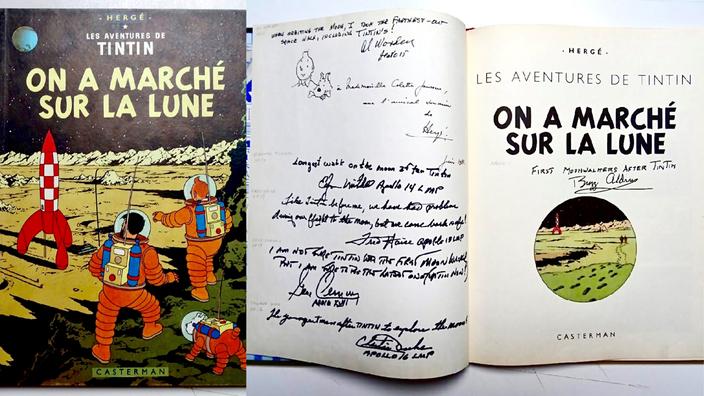 · HERGÉ ·
LES AVENTURES DE
TINTIN
ON A MARCHÉ
SUR LA LUNE
CASTERMAN
WHEN ORBITING THE MOON, I TOOK THE FARTHEST-OUT
SPACE WALK, INCLUDING TINTIN'S!
Al Worden
à Mademoiselle
avec l'amical
Hergé
Longest walk on the moon Tintin
Apollo 14 LMP
Like Tintin before me, we have had problem
during our flight to the moon, but we came back safe!
Fred Haise Apollo 13 LMP
I AM NOT LIKE TINTIN THE FIRST MOON
BUT I AM THE LATEST
Gene Cernan
The youngest man after TINTIN to explore the moon!
Charlie Duke
APOLLO 16 LMP
· HERGÉ ·
LES AVENTURES DE TINTIN
ON A MARCHÉ
SUR LA LUNE
FIRST MOONWALKERS AFTER TINTIN
Buzz Aldrin
CASTERMAN